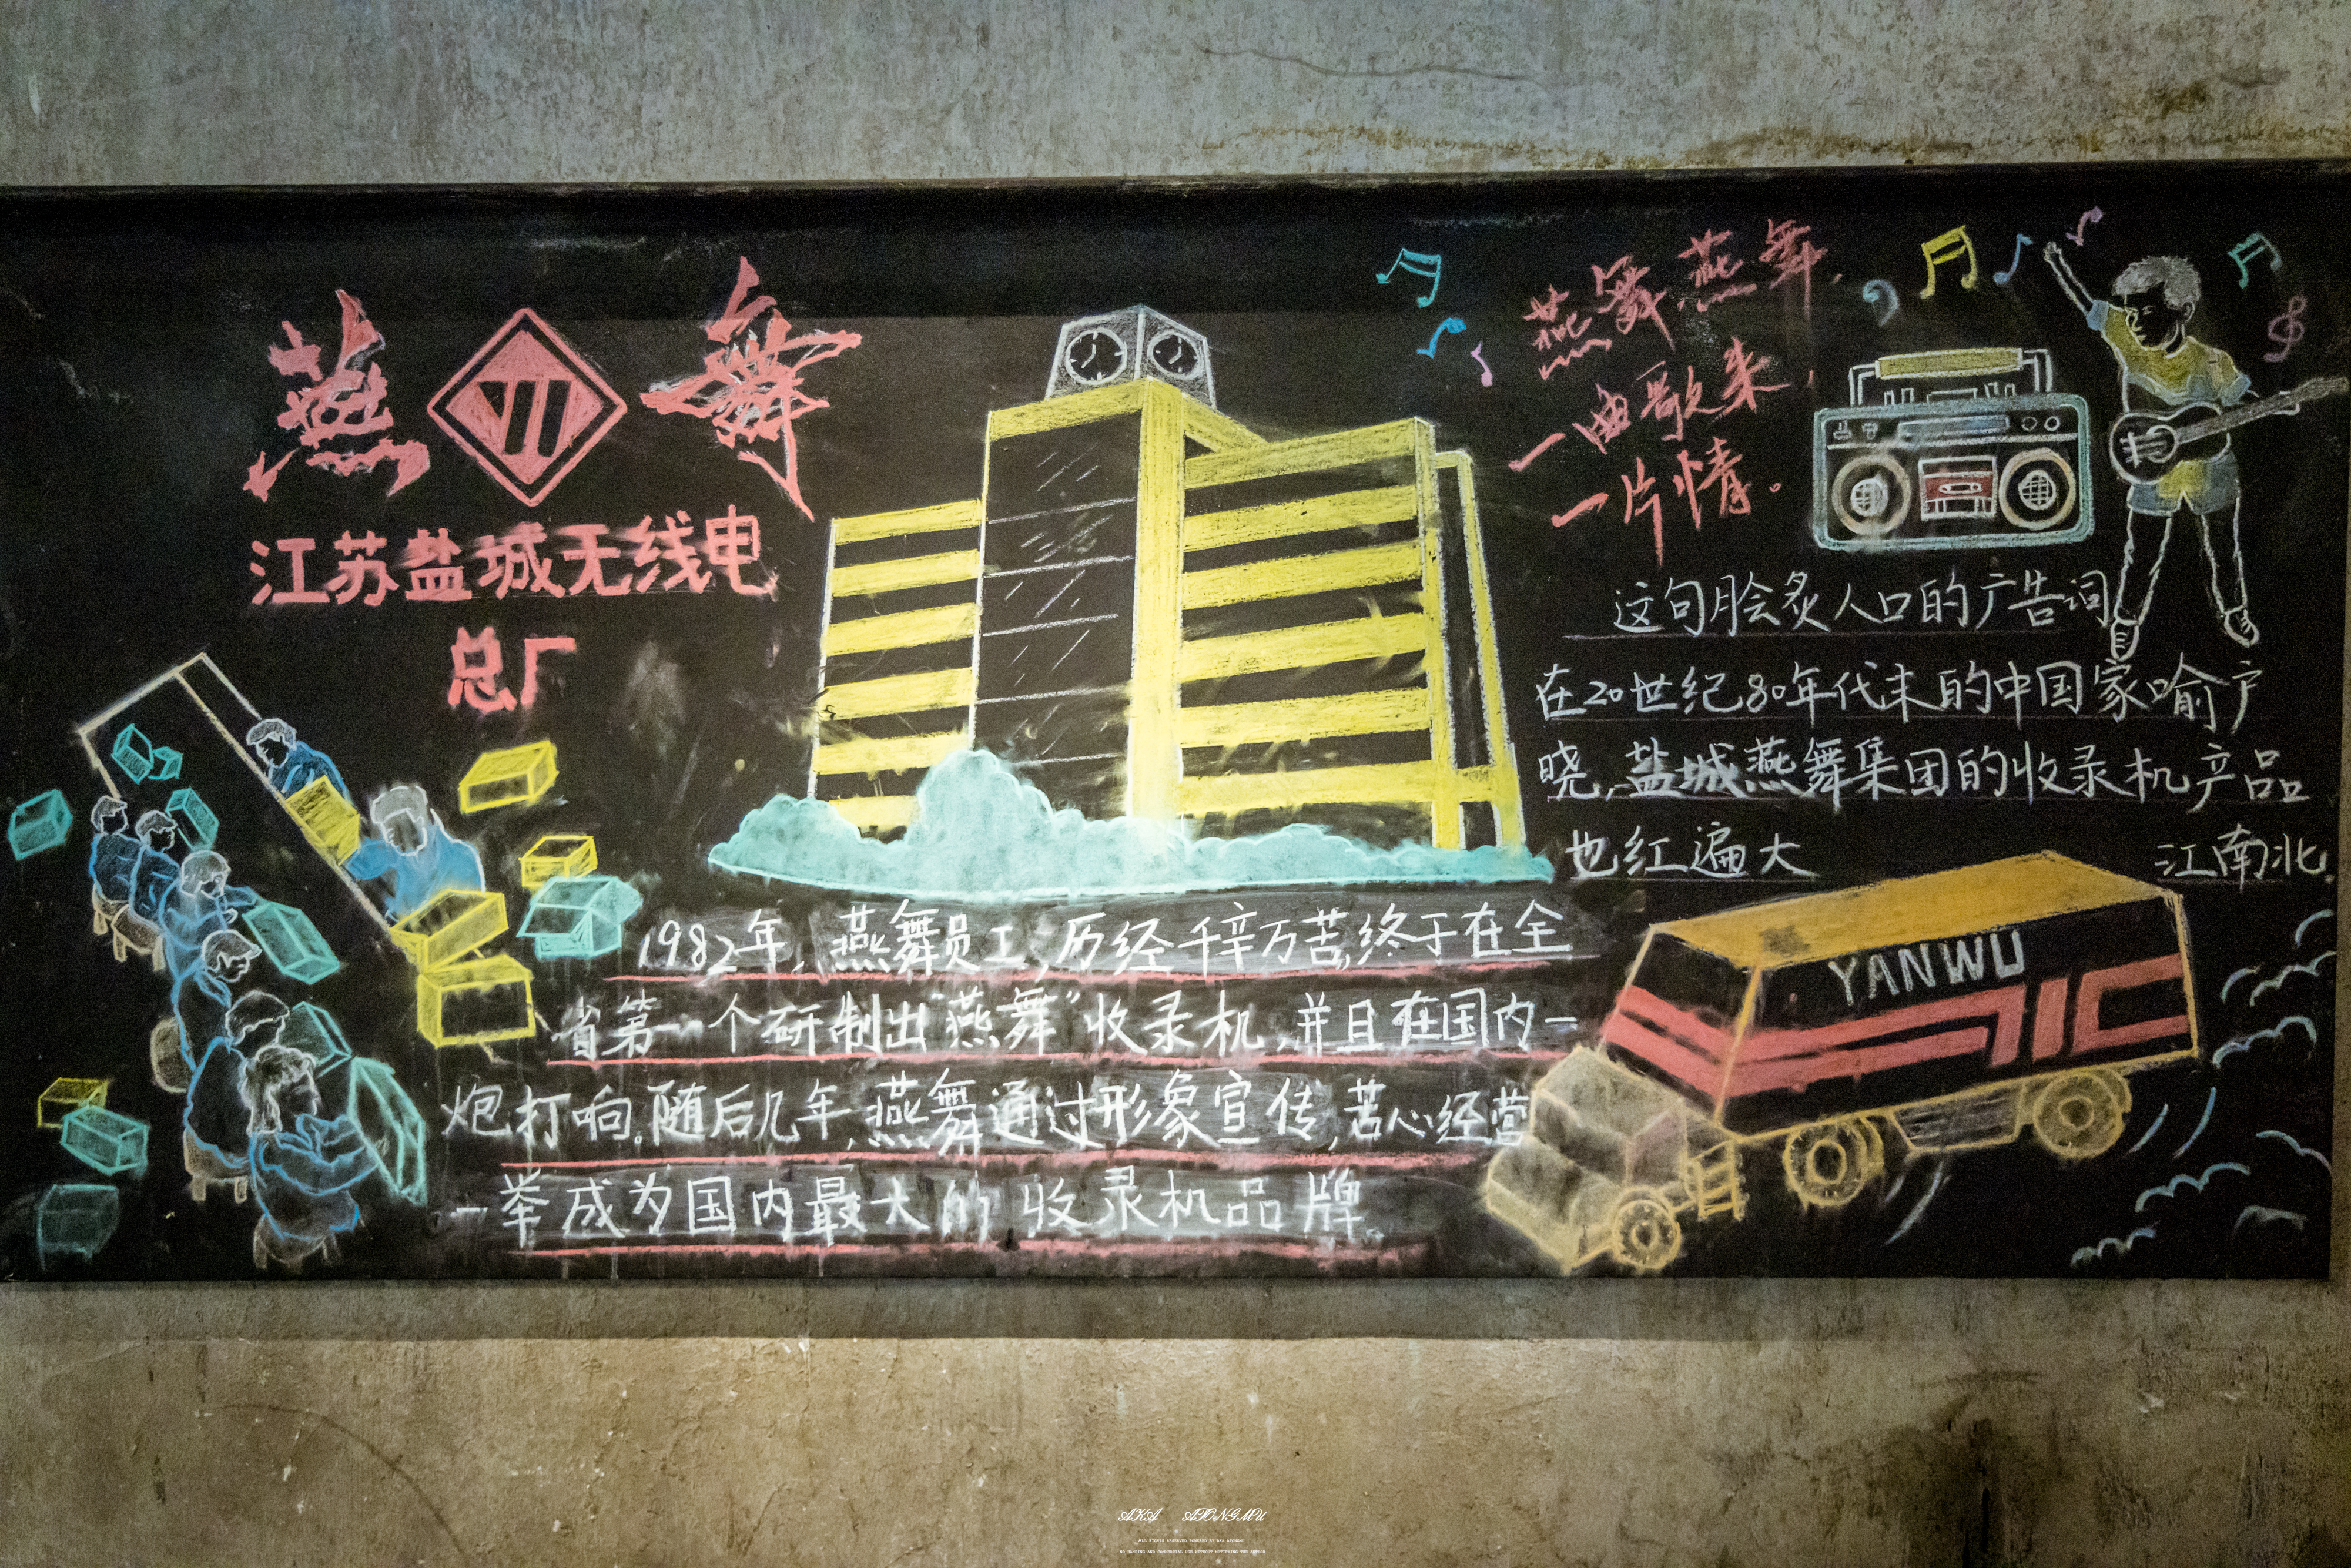 燕舞
江苏盐城无线电
总厂
燕舞燕舞,
一曲歌来,
一片情。
这句脍炙人口的广告词
在20世纪80年代末的中国家喻户
晓,盐城燕舞集团的收录机产品
也红遍大 江南北。
1982年,燕舞员工,历经千辛万苦,终于在全
省第一个研制出“燕舞”收录机,并且在国内一
炮打响。随后几年,燕舞通过形象宣传,苦心经营
一举成为国内最大的收录机品牌。
YANWU
AKA ATONGMU